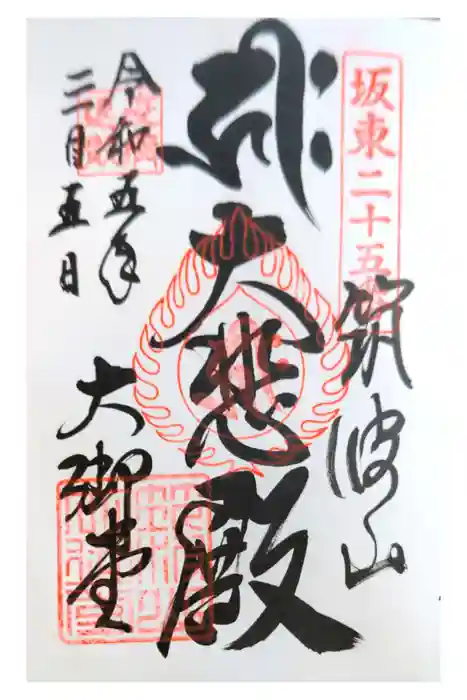 坂東二十五番
筑波山
大悲殿
大御堂
令和五年
三月五日